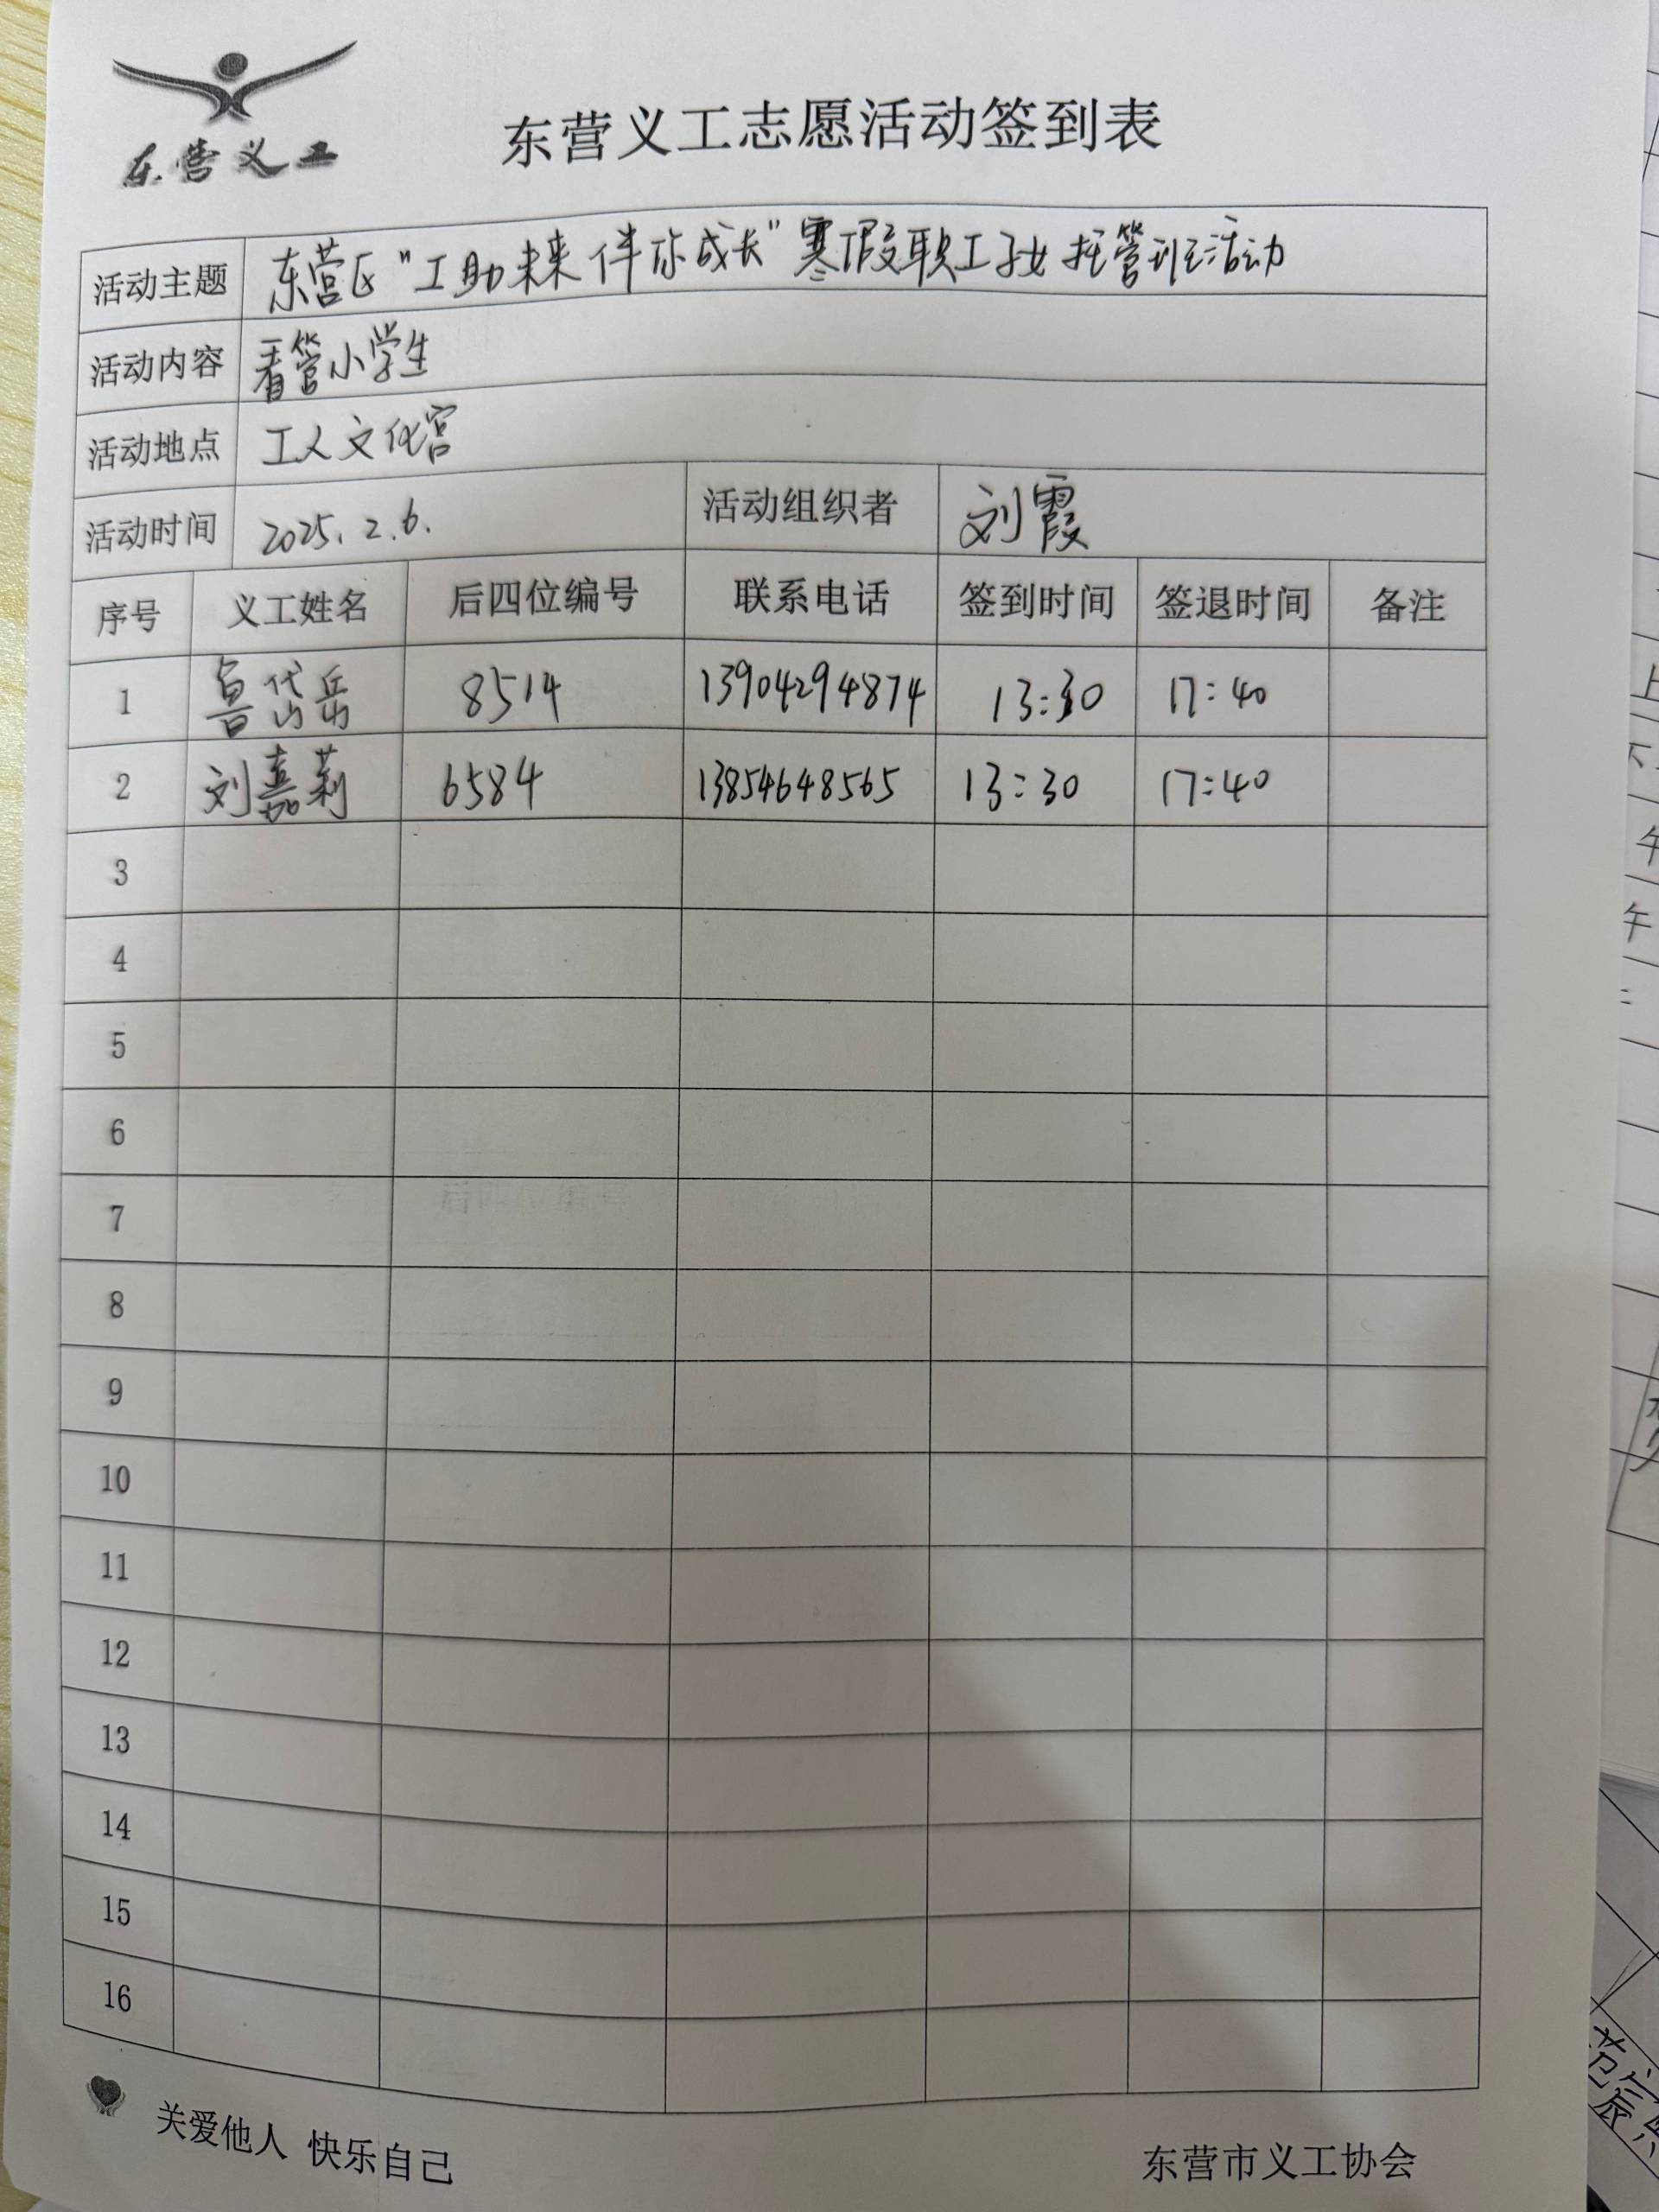 东营义工
东营义工志愿活动签到表
活动主题 东营区“工助未来 伴你成长”寒假职工子女托管班活动
活动内容 看管小学生
活动地点 工人文化宫
活动时间 2025.2.6. 活动组织者 刘霞
序号 义工姓名 后四位编号 联系电话 签到时间 签退时间 备注
1 鲁岱岳 8514 13904294874 13:30 17:40
2 刘嘉莉 6584 13854648565 13:30 17:40
3
4
5
6
7
8
9
10
11
12
13
14
15
16
关爱他人 快乐自己
东营市义工协会